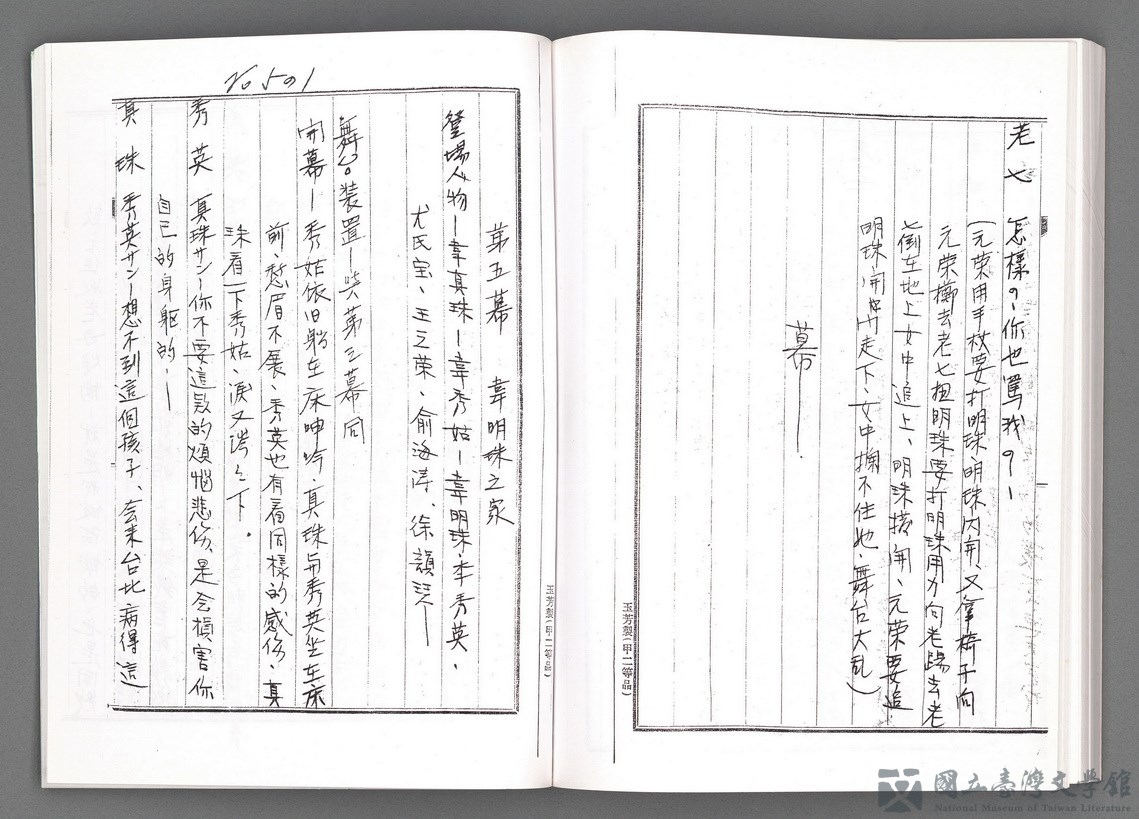 老七 怎樣?、你也罵我?—
(元荣用手杖要打明珠、明珠闪開、又拿椅子向
元荣擲去老七扭明珠要打明珠用力向老踢去老
七倒在地上女中追上、明珠撐開、元荣要追
明珠、開門走下、女中擋不住她、舞台大乱)
幕——.
玉芳製(甲二等品)
玉芳製(甲二等品)
第五幕 韋明珠之家
登場人物—韋真珠—韋秀姑—韋明珠、李秀英、
尤氏宝、王元荣、俞海涛、徐韻琴——
舞台装置—与第三幕同
開幕—秀姑依旧躺在床呻吟、真珠与秀英坐在床
前、愁眉不展、秀英也有着同樣的感伤、真
珠看一下秀姑、淚又潸々下.
秀英 真珠サン—你不要這款的煩惱悲伤、是会損害你
自己的身軀的、—
真珠 秀英サン—想不到這個孩子、会来台北病得這
國立臺灣文學館
National Museum of Taiwan Literature